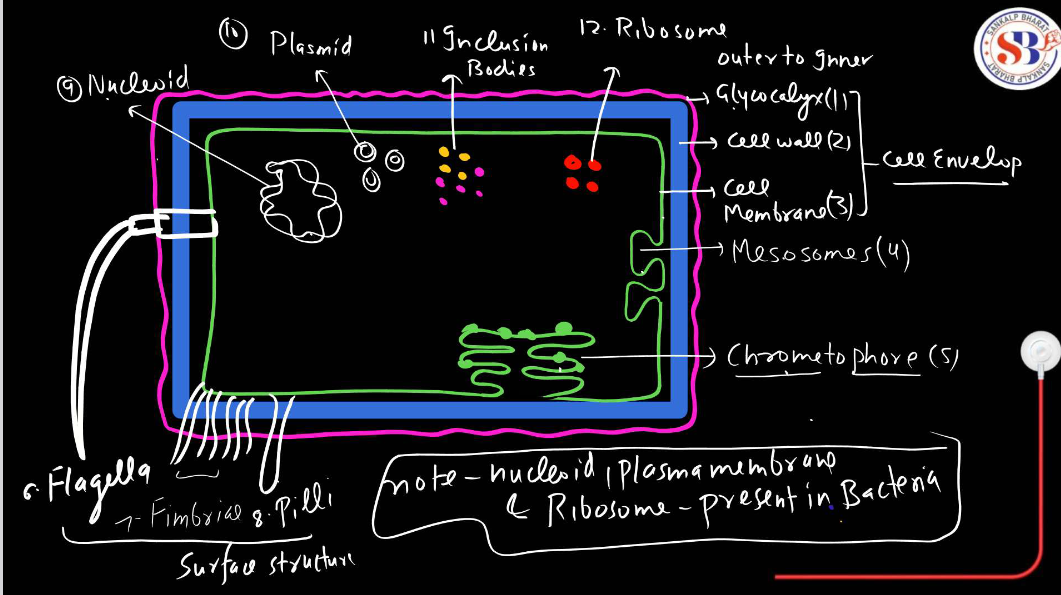 10 Plasmid
11 Inclusion
Bodies
12. Ribosome
9 Nucleoid
outer to Inner
Glycocalyx (1)
Cell wall (2)
Cell
Membrane (3)
Cell Envelop
Mesosomes (4)
Chrometophore (5)
6. Flagella
7. Fimbriae 8. Pilli
Surface structure
note - nucleoid, plasmamembrane
& Ribosome - present in Bacteria
SANKALP BHARAT
SB
SANKALP BHARAT